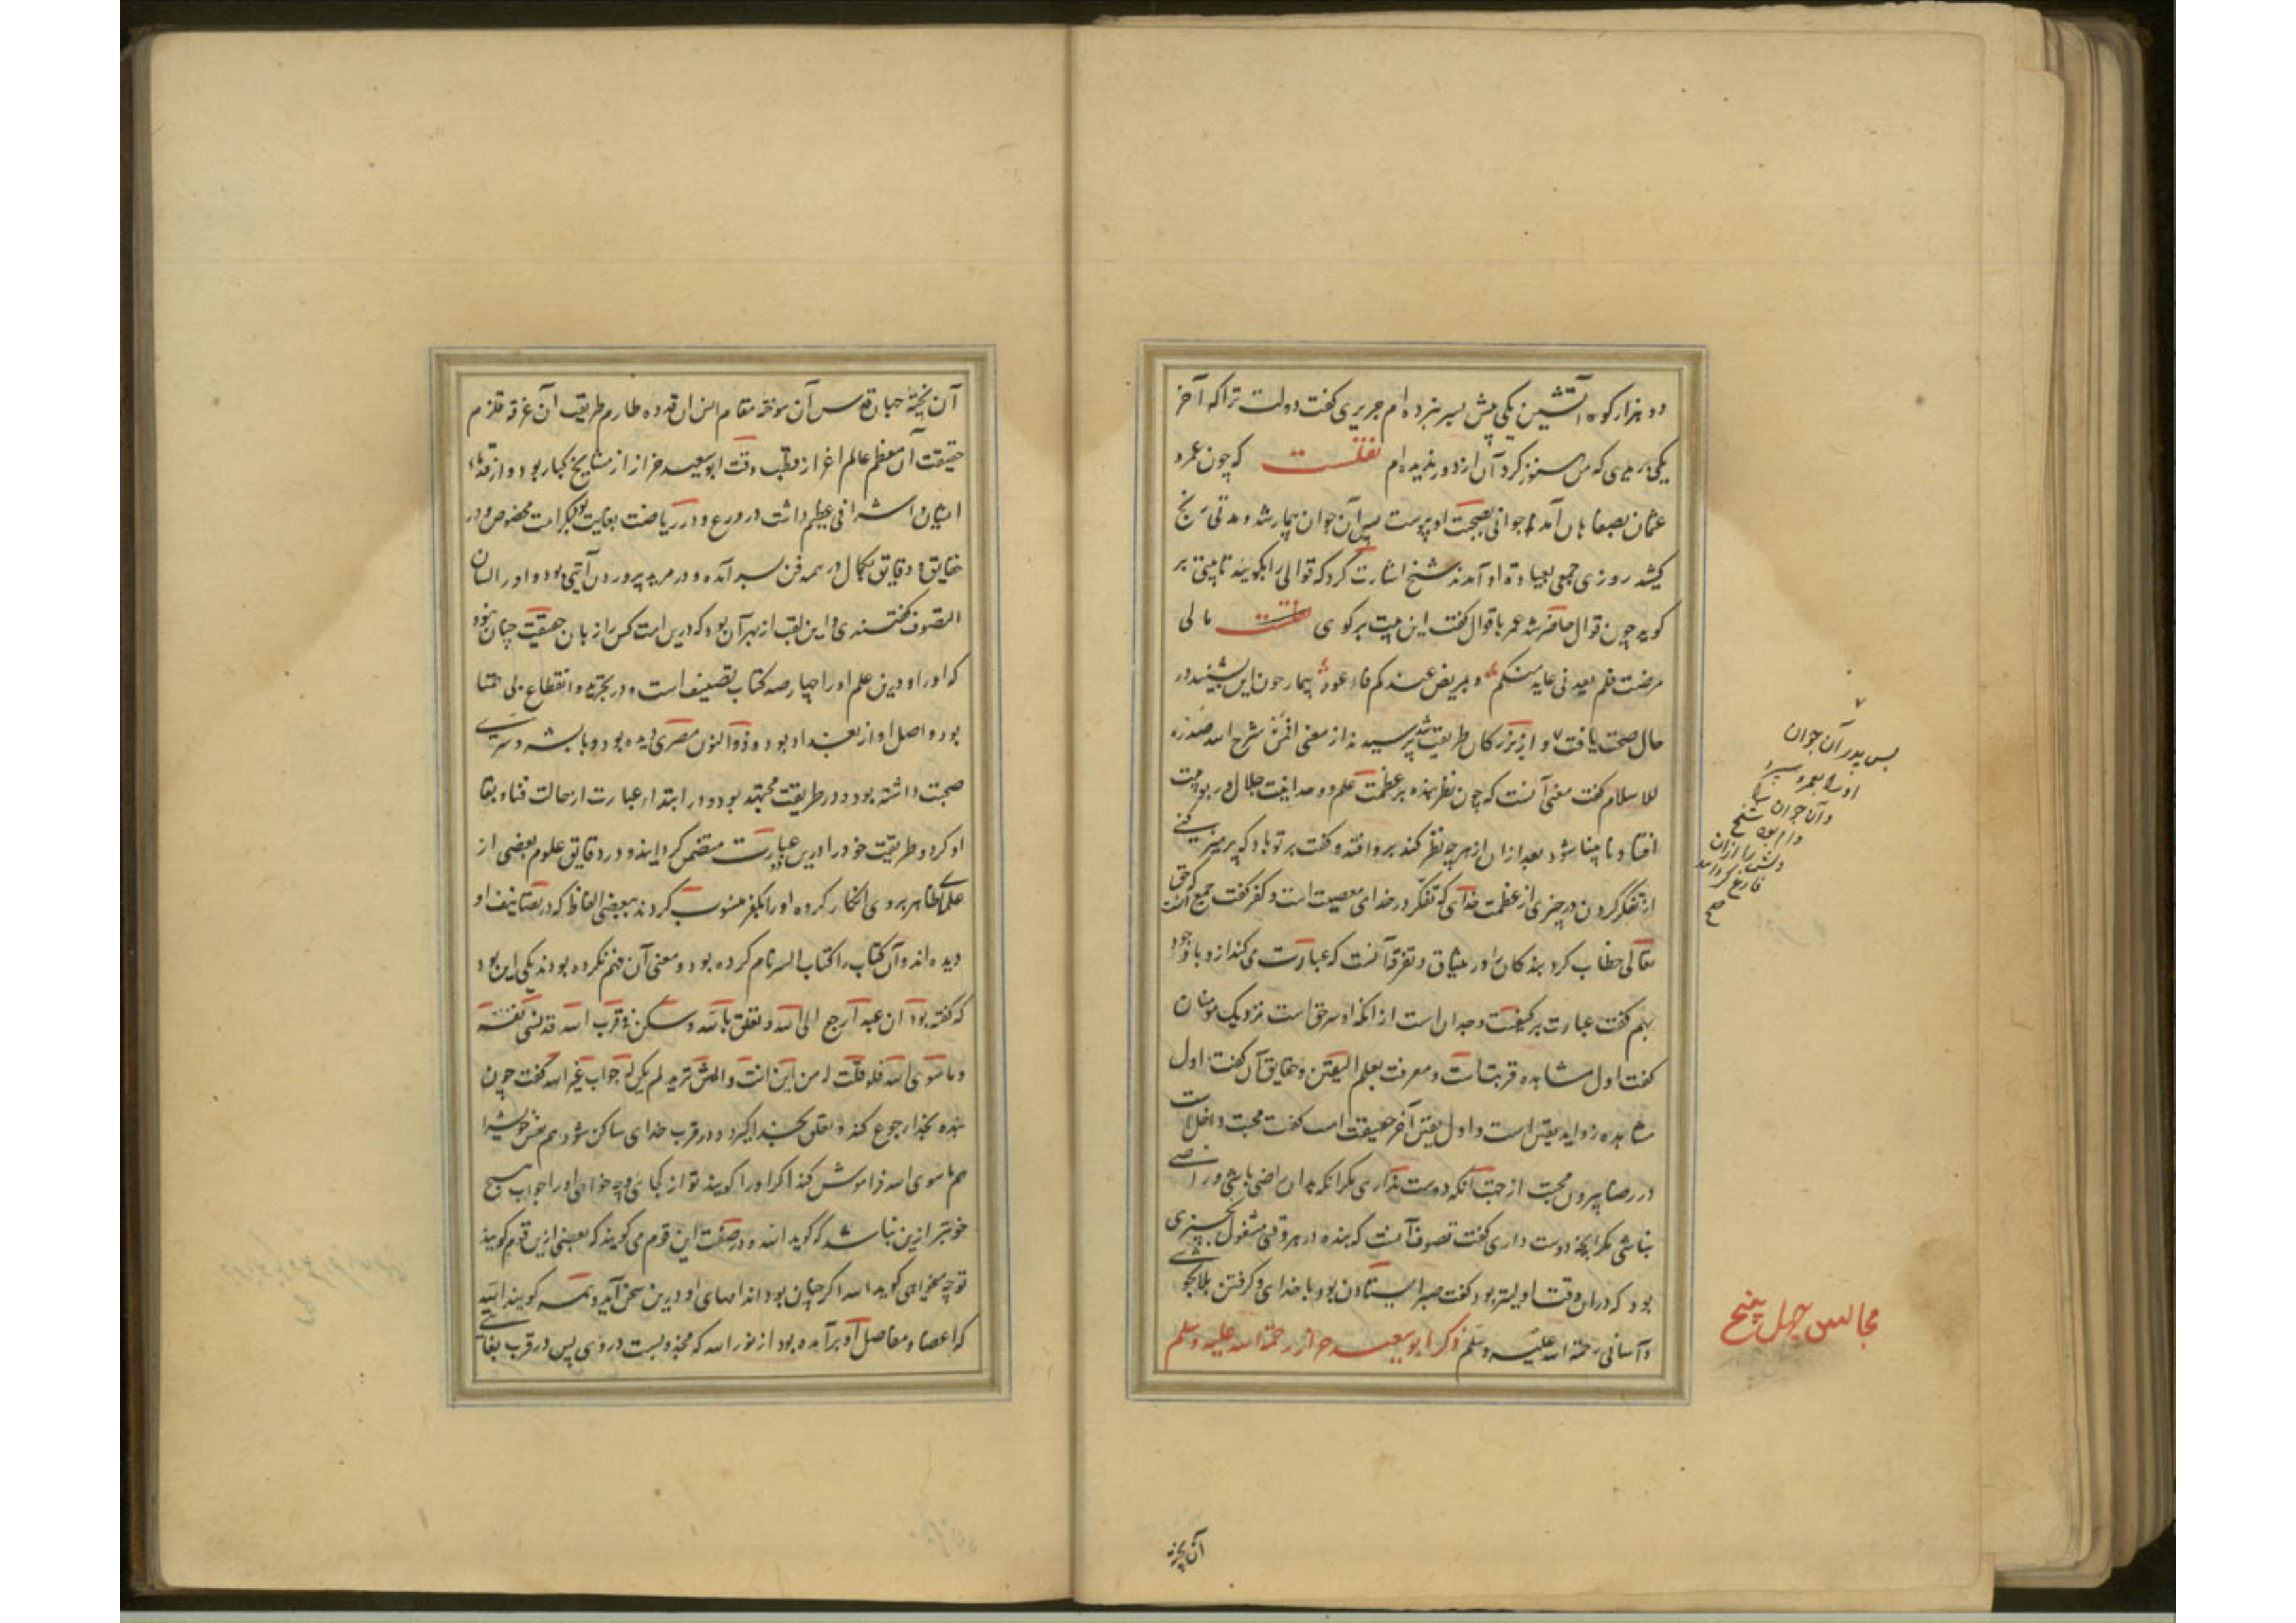 دو هزار کوه آتشین یکی پیش بسر برده ام جریری گفت دولت ترا که آخر
یکی که من هنوز کرد آن از دور ندیده ام نقلست که چون عمرو
عثمان بصفاهان آمد جوانی بصحبت او پیوست پس آن جوان بیمار شد و مدتی رنج
کشید روزی جمعی بعیادة او آمدند شیخ اشارت کرد که قوالی را بگویید تا بیتی بر
گوید چون قوال حاضر شد عمر با قوال گفت این بیت برگوی مالی
مرضت فلم یعدنی عاید منکم و یمرض عبدکم فاعود بیمار چون این بشنید در
حال صحت یافت ۷ و از بزرگان طریقت شد پرسیدند از معنی افمن شرح الله صدره
للاسلام گفت معنی آنست که چون نظر بنده بر عظمت علم و وحدانیت جلال و ربوبیت
افتاد نابینا شود بعد از ان از هرچه نظر کند برو افتد و گفت بر تو باد که پرهیز کنی
از تفکر کردن در چیزی از عظمت خدای که تفکر در خدای معصیت است و کفر گفت جمع آنست که حق
تعالی خطاب کرد بندگان را در میثاق و تفرقه آنست که عبارت می کند ازو با وجود
بهم گفت عبارت بر کیفیت وجد ان است از آنکه او سر حق است نزدیک مومنان
گفت اول مشاهده قربتست و معرفت بعلم الیقین و حقایق آن گفت اول
مشاهده زواید یقین است و اول یقین آخر حقیقت است گفت محبت داخل است
در رضا بیرون محبت از حب آنکه دوست نداری مگر آنکه بدان راضی باشی و راضی
نباشی مگر بآنچه دوست داری گفت تصوف آنست که بنده در هر وقتی مشغول بچیزی
بود که در ان وقت اولیتر بود گفت صبر ایستادن بود با خدای و گرفتن بلا بخوشی
و آسانی رحمة الله علیه وسلم ذکر ابو سعید خراز رحمة الله علیه وسلم
پس پدر آن جوان
او را بعمرو سپرد
و آن جوان
دلش را از ان
فارغ گردانید
صح
مجالس چهل پنج
آن پخته
آن پخته جهان قدس آن سوخته مقام انس ان قدوه طارم طریقت ان غرقه قلزم
حقیقت آن معظم عالم اعزاز قطب وقت ابو سعید خراز از مشایخ کبار بود و از قدماء
ایشان اشرافی عظیم داشت در ورع و در ریاضت بغایت بود بکرامت مخصوص و در
حقایق و دقایق بکمال در همه فن بسر آمده و در مرید پروردن آیتی بود و او را لسان
التصوف گفتندی و این لقب از بهر آن بود که درین امت کس را زبان حقیقت چنان نبود
که او را و درین علم او را چهار صد کتاب تصنیف است و در تجرید و انقطاع بی همتا
بود و اصل او از بغداد بود و ذو النون مصری دیده بود و با بشر و سری
صحبت داشته بود و در طریقت مجتهد بود و در ابتداء عبارت از حالت فنا و بقا
او کرد و طریقت خود را درین عبارت متضمن گردانید و در دقایق علوم بعضی از
علمای ظاهر بروی انکار کرده او را بکفر منسوب کردند ببعضی الفاظ که در تصانیف او
دیده اند و آن کتاب را کتاب السر نام کرده بود و معنی آن فهم نکرده بودند یکی این بود
که گفته بود ان عبد ارجع الی الله و تعلق بالله و سکن فی قرب الله قد نسی نفسه
و ما سوی الله فلو قلت له من این انت و ایش ترید لم یکن له جواب غیر الله گفت چون
بنده بخدا رجوع کند و تعلق بخدا گیرد و در قرب خدای ساکن شود هم نفس خویش را
هم ما سوی الله فراموش کند اگر او را گویند تو از کجایی و چه خواهی او را جواب هیچ
خوبتر ازین نباشد که گوید الله و در صفت این قوم می گویند که بعضی ازین قوم گویند
تو چه میخواهی گوید الله اگر چنان بود اندامهای او درین سخن آید و همه گویند الله
که اعضا و مفاصل او برآمده بود از نور الله که مجذوبست در وی پس در قرب بغایتی